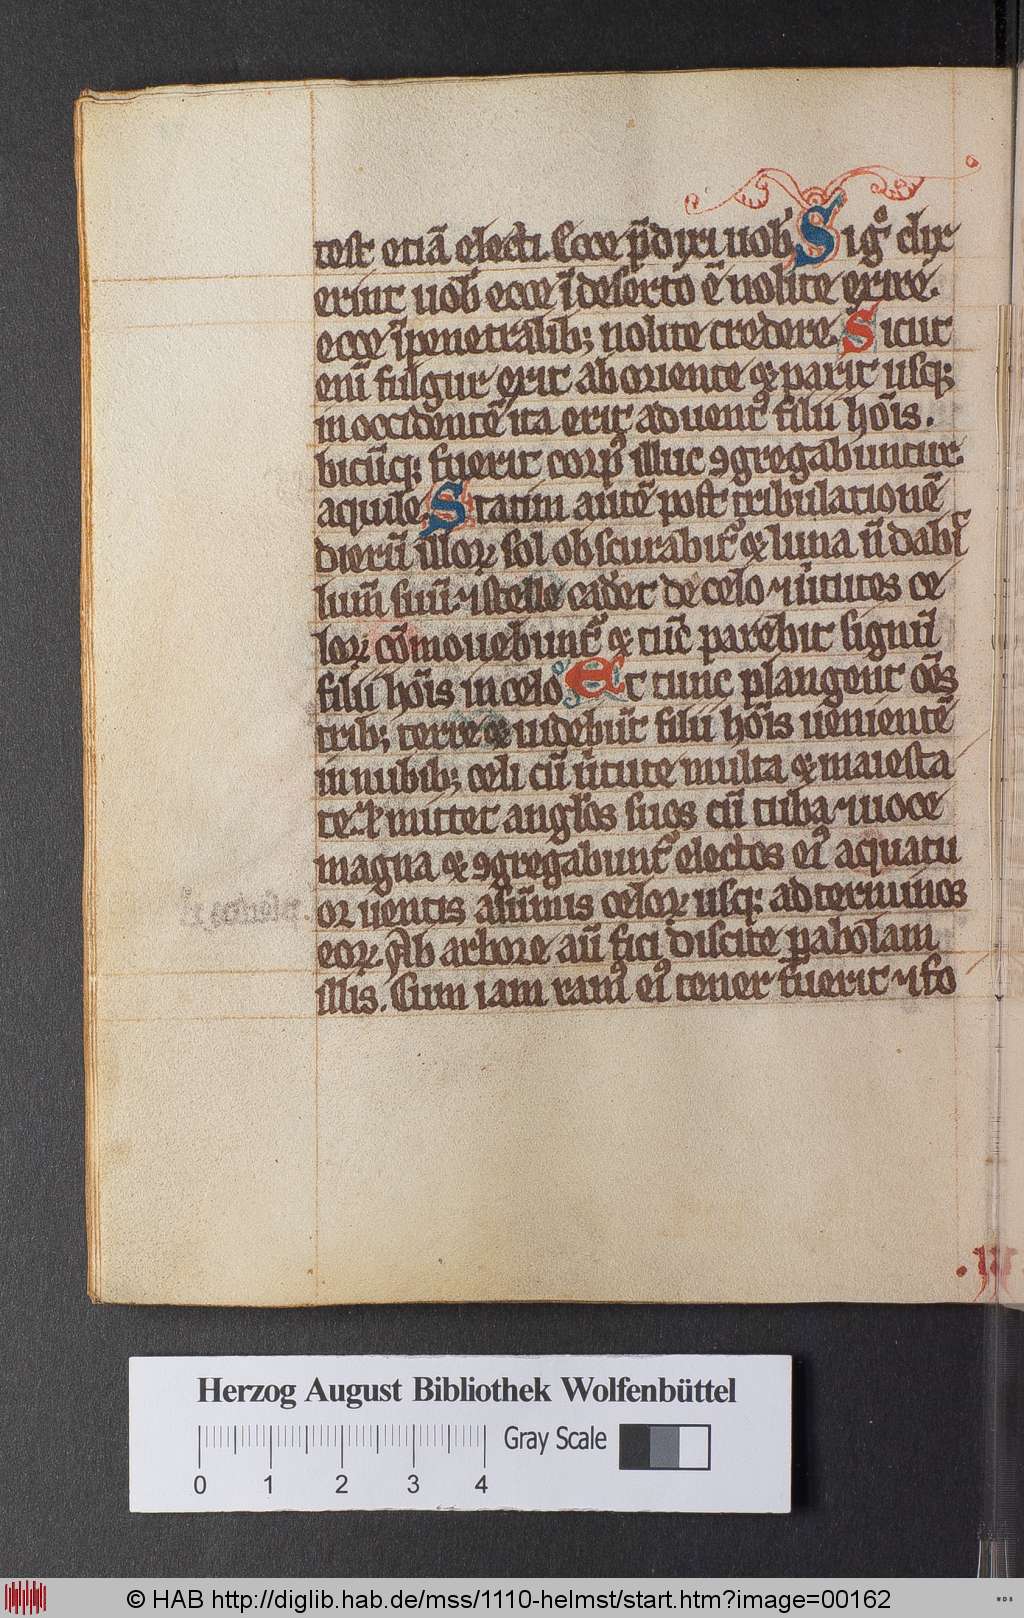 test etiā electi. Ecce p̄dixi uob̄ Sigͦ dix
erint uob̄ ecce ī deserto ē nolite exire.
ecce ī penetralib; nolite credere. Sicut
enī fulgur exit ab oriente ⁊ parit usq;
in occidentē ita erit aduentꝰ filii hoīs.
bicūq; fuerit corpꝰ illuc ꝯgregabuntur
aquile. Statim autē post tribulationē
dierū illoꝝ sol obscurabitᷣ ⁊ luna ñ dabit
lum̄ suū. ⁊ stelle cadēt de celo ⁊ ũtutes ce
loꝝ cōmouebuntᷣ ⁊ tūc parebit signū
filii hoīs in celo Et tunc plangent om̄s
trib; terre ⁊ uidebūt filiū hoīs uenientē
in nubib; celi cū ũtute multa ⁊ maiesta
te. Et mittet angłos suos cū tuba ⁊ uoce
magna ⁊ ꝯgregabuntᷣ electos eiꝰ a quatu
or uentis a sūmis celoꝝ usq; ad terminos
eoꝝ. Ab arbore aū fici discite parabolam
illis. Cum iam ramꝰ eiꝰ tener fuerit ⁊ fo
Herzog August Bibliothek Wolfenbüttel
Gray Scale
0 1 2 3 4
© HAB http://diglib.hab.de/mss/1110-helmst/start.htm?image=00162